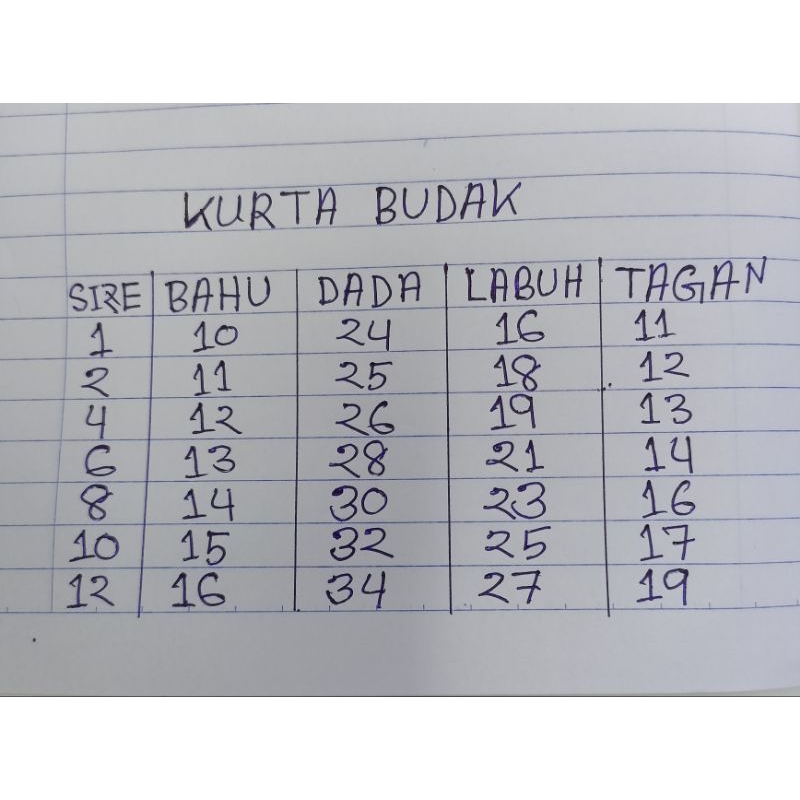 KURTA BUDAK
SIZE BAHU DADA LABUH TAGAN
1 10 24 16 11
2 11 25 18 12
4 12 26 19 13
6 13 28 21 14
8 14 30 23 16
10 15 32 25 17
12 16 34 27 19